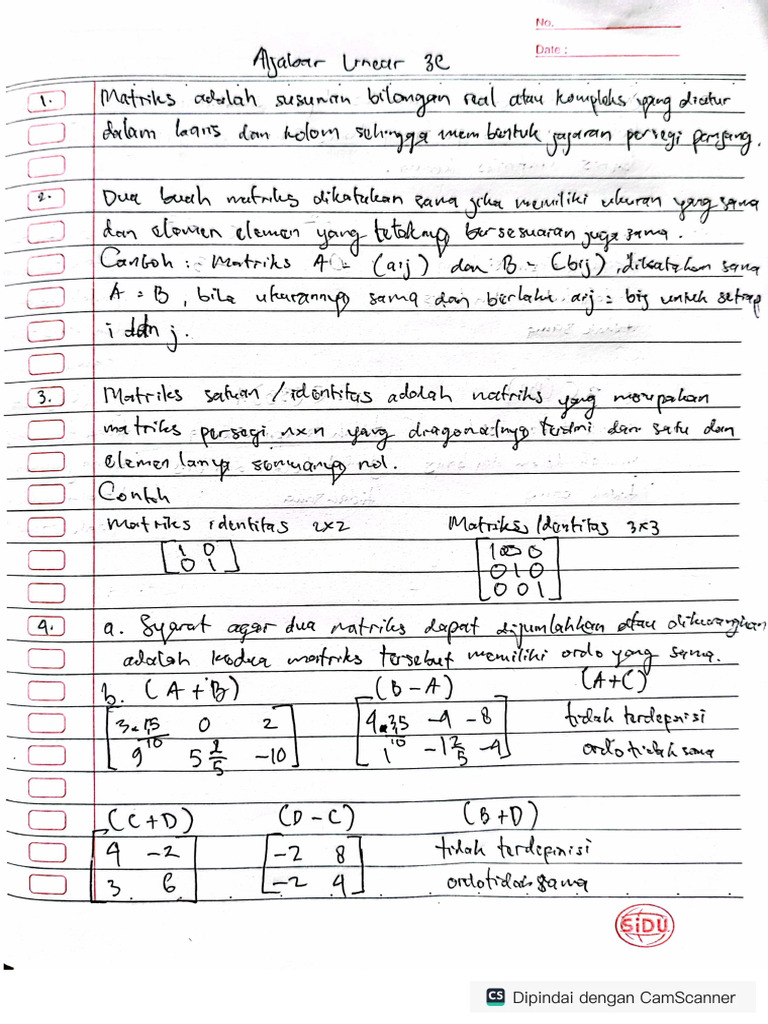 No.
Date :
Aljabar Linear 3C
1. Matriks adalah susunan bilangan real atau kompleks yang diatur
dalam baris dan kolom sehingga membentuk jajaran persegi panjang.
2. Dua buah matriks dikatakan sama jika memiliki ukuran yang sama
dan elemen elemen yang letaknya bersesuaian juga sama.
Contoh : Matriks A = (aij) dan B = (bij), dikatakan sama
A = B, bila ukurannya sama dan berlaku aij = bij untuk setiap
i dan j.
3. Matriks satuan / identitas adalah matriks yang merupakan
matriks persegi nxn yang diagonalnya terdiri dari satu dan
elemen lanya semuanya nol.
Contoh
Matriks identitas 2x2 Matriks Identitas 3x3
1 0 1 0 0
0 1 0 1 0
0 0 1
4. a. Syarat agar dua matriks dapat dijumlahkan atau dikurangkan
adalah kedua matriks tersebut memiliki ordo yang sama.
b. (A + B) (B - A) (A+C)
0 2 -4 -8 tidak terdepinisi
9 5 2/5 -10 1 -1 2/5 -4 ordo tidak sama
(C+D) (D - C) (B+D)
4 -2 -2 8 tidak terdepinisi
3 6 -2 4 ordo tidak sama
SiDU
CS Dipindai dengan CamScanner